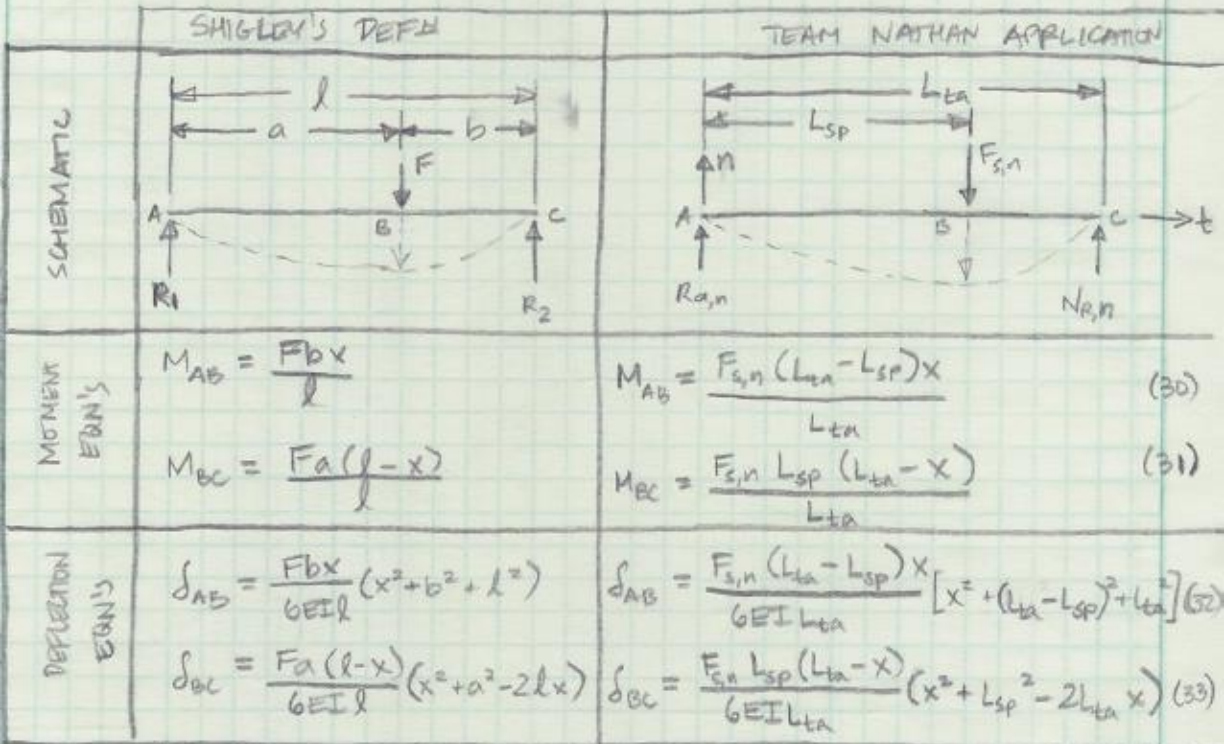 SHIGLEY'S DEFN
TEAM NATHAN APPLICATION
SCHEMATIC
l
a b
F
A B C
R₁ R₂
L_ta
L_sp
n F_s,n
A B C t
R_a,n N_R,n
MOMENT
EQN'S
M_AB = Fbx / l
M_BC = Fa(l-x) / l
M_AB = F_s,n (L_ta - L_sp)x / L_ta (30)
M_BC = F_s,n L_sp (L_ta - x) / L_ta (31)
DEFLECTION
EQN'S
δ_AB = Fbx / 6EIl (x² + b² + l²)
δ_BC = Fa(l-x) / 6EIl (x² + a² - 2lx)
δ_AB = F_s,n (L_ta - L_sp)x / 6EI L_ta [x² + (L_ta - L_sp)² + L_ta²] (32)
δ_BC = F_s,n L_sp (L_ta - x) / 6EI L_ta (x² + L_sp² - 2L_ta x) (33)